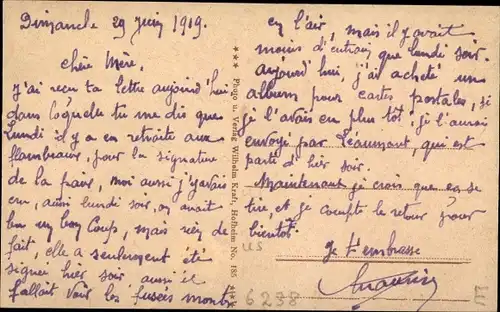 Dimanche 29 Juin 1919.
Chère Mère,
J'ai reçu ta lettre aujourd'hui
dans laquelle tu me dis que
Lundi il y a eu retraite aux
flambeaux, pour la signature
de la paix, moi aussi j'y avais
cru, aussi lundi soir, on avait
bu un bon Coup, mais rien de
fait, elle a seulement été
signée hier soir aussi il
fallait voir les fusées monter
en l'air, mais il y avait
moins d'entrain que lundi soir.
Aujourd'hui, j'ai acheté un
album pour cartes postales, si
je l'avais eu plus tôt je l'aurais
envoyé par qui est
parti d'hier soir.
Maintenant je crois que ça se
tire, et je compte le retour pour
bientôt.
Je t'embrasse
*** Photo u. Verlag Wilhelm Kraft, Hofheim No. 185 ***
US
6238